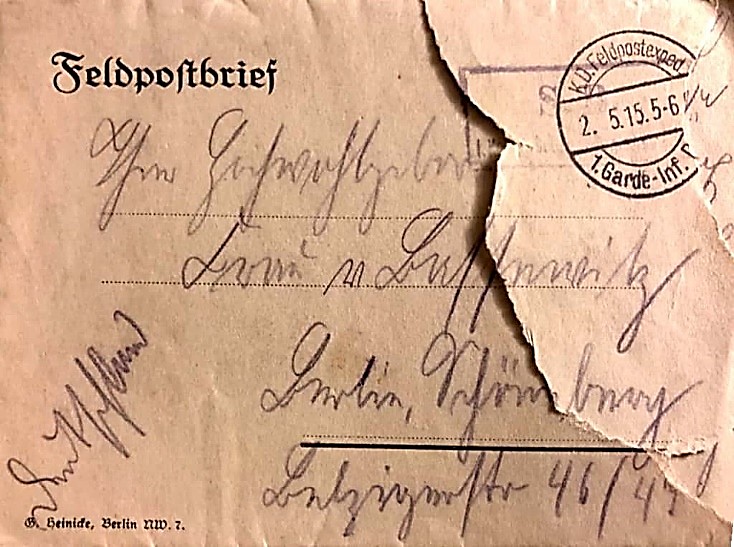 Feldpostbrief
K.D. Feldpostexped.
2. 5.15. 5-6
1. Garde-Inf.
Ihrer Hochwohlgeboren
Frau v Bassewitz
Berlin, Schöneberg
Belzigerstr 46/
Deutschland
G. Heinicke, Berlin NW. 7.